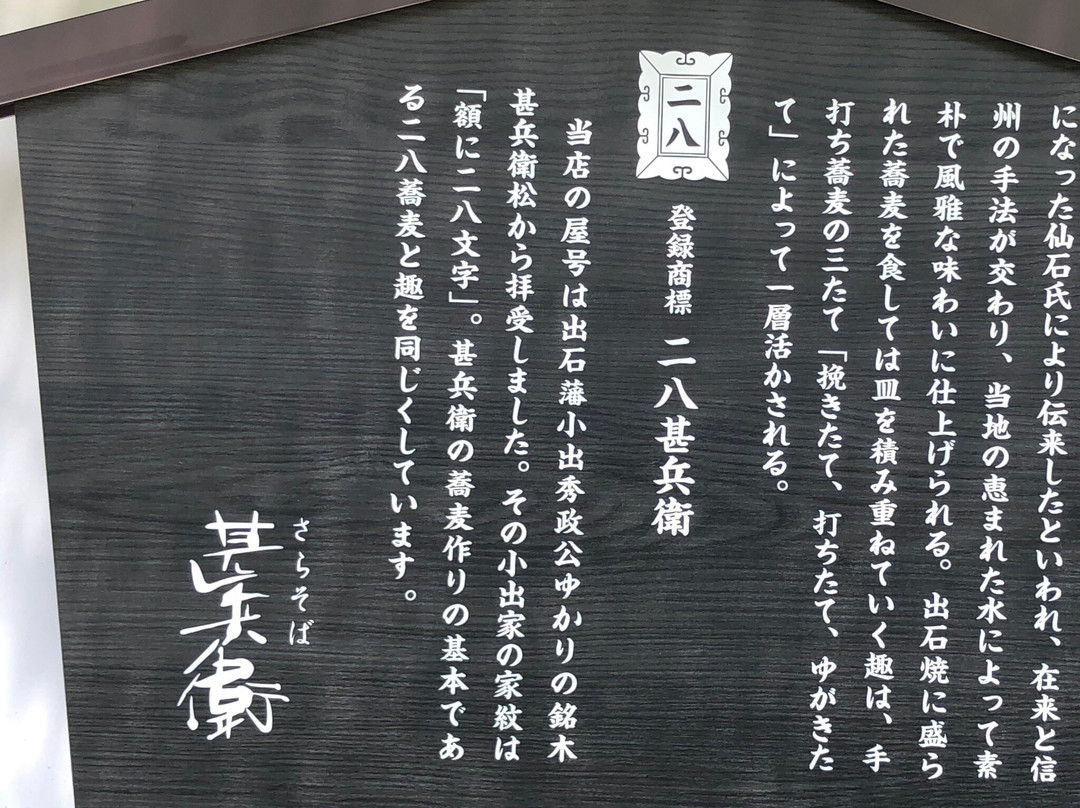 になった仙石氏により伝来したといわれ、在来と信
州の手法が交わり、当地の恵まれた水によって素
朴で風雅な味わいに仕上げられる。出石焼に盛ら
れた蕎麦を食しては皿を積み重ねていく趣は、手
打ち蕎麦の三たて「挽きたて、打ちたて、ゆがきた
て」によって一層活かされる。
二八
登録商標 二八甚兵衛
当店の屋号は出石藩小出秀政公ゆかりの銘木
甚兵衛松から拝受しました。その小出家の家紋は
「額に二八文字」。甚兵衛の蕎麦作りの基本であ
る二八蕎麦と趣を同じくしています。
さらそば
甚兵衛